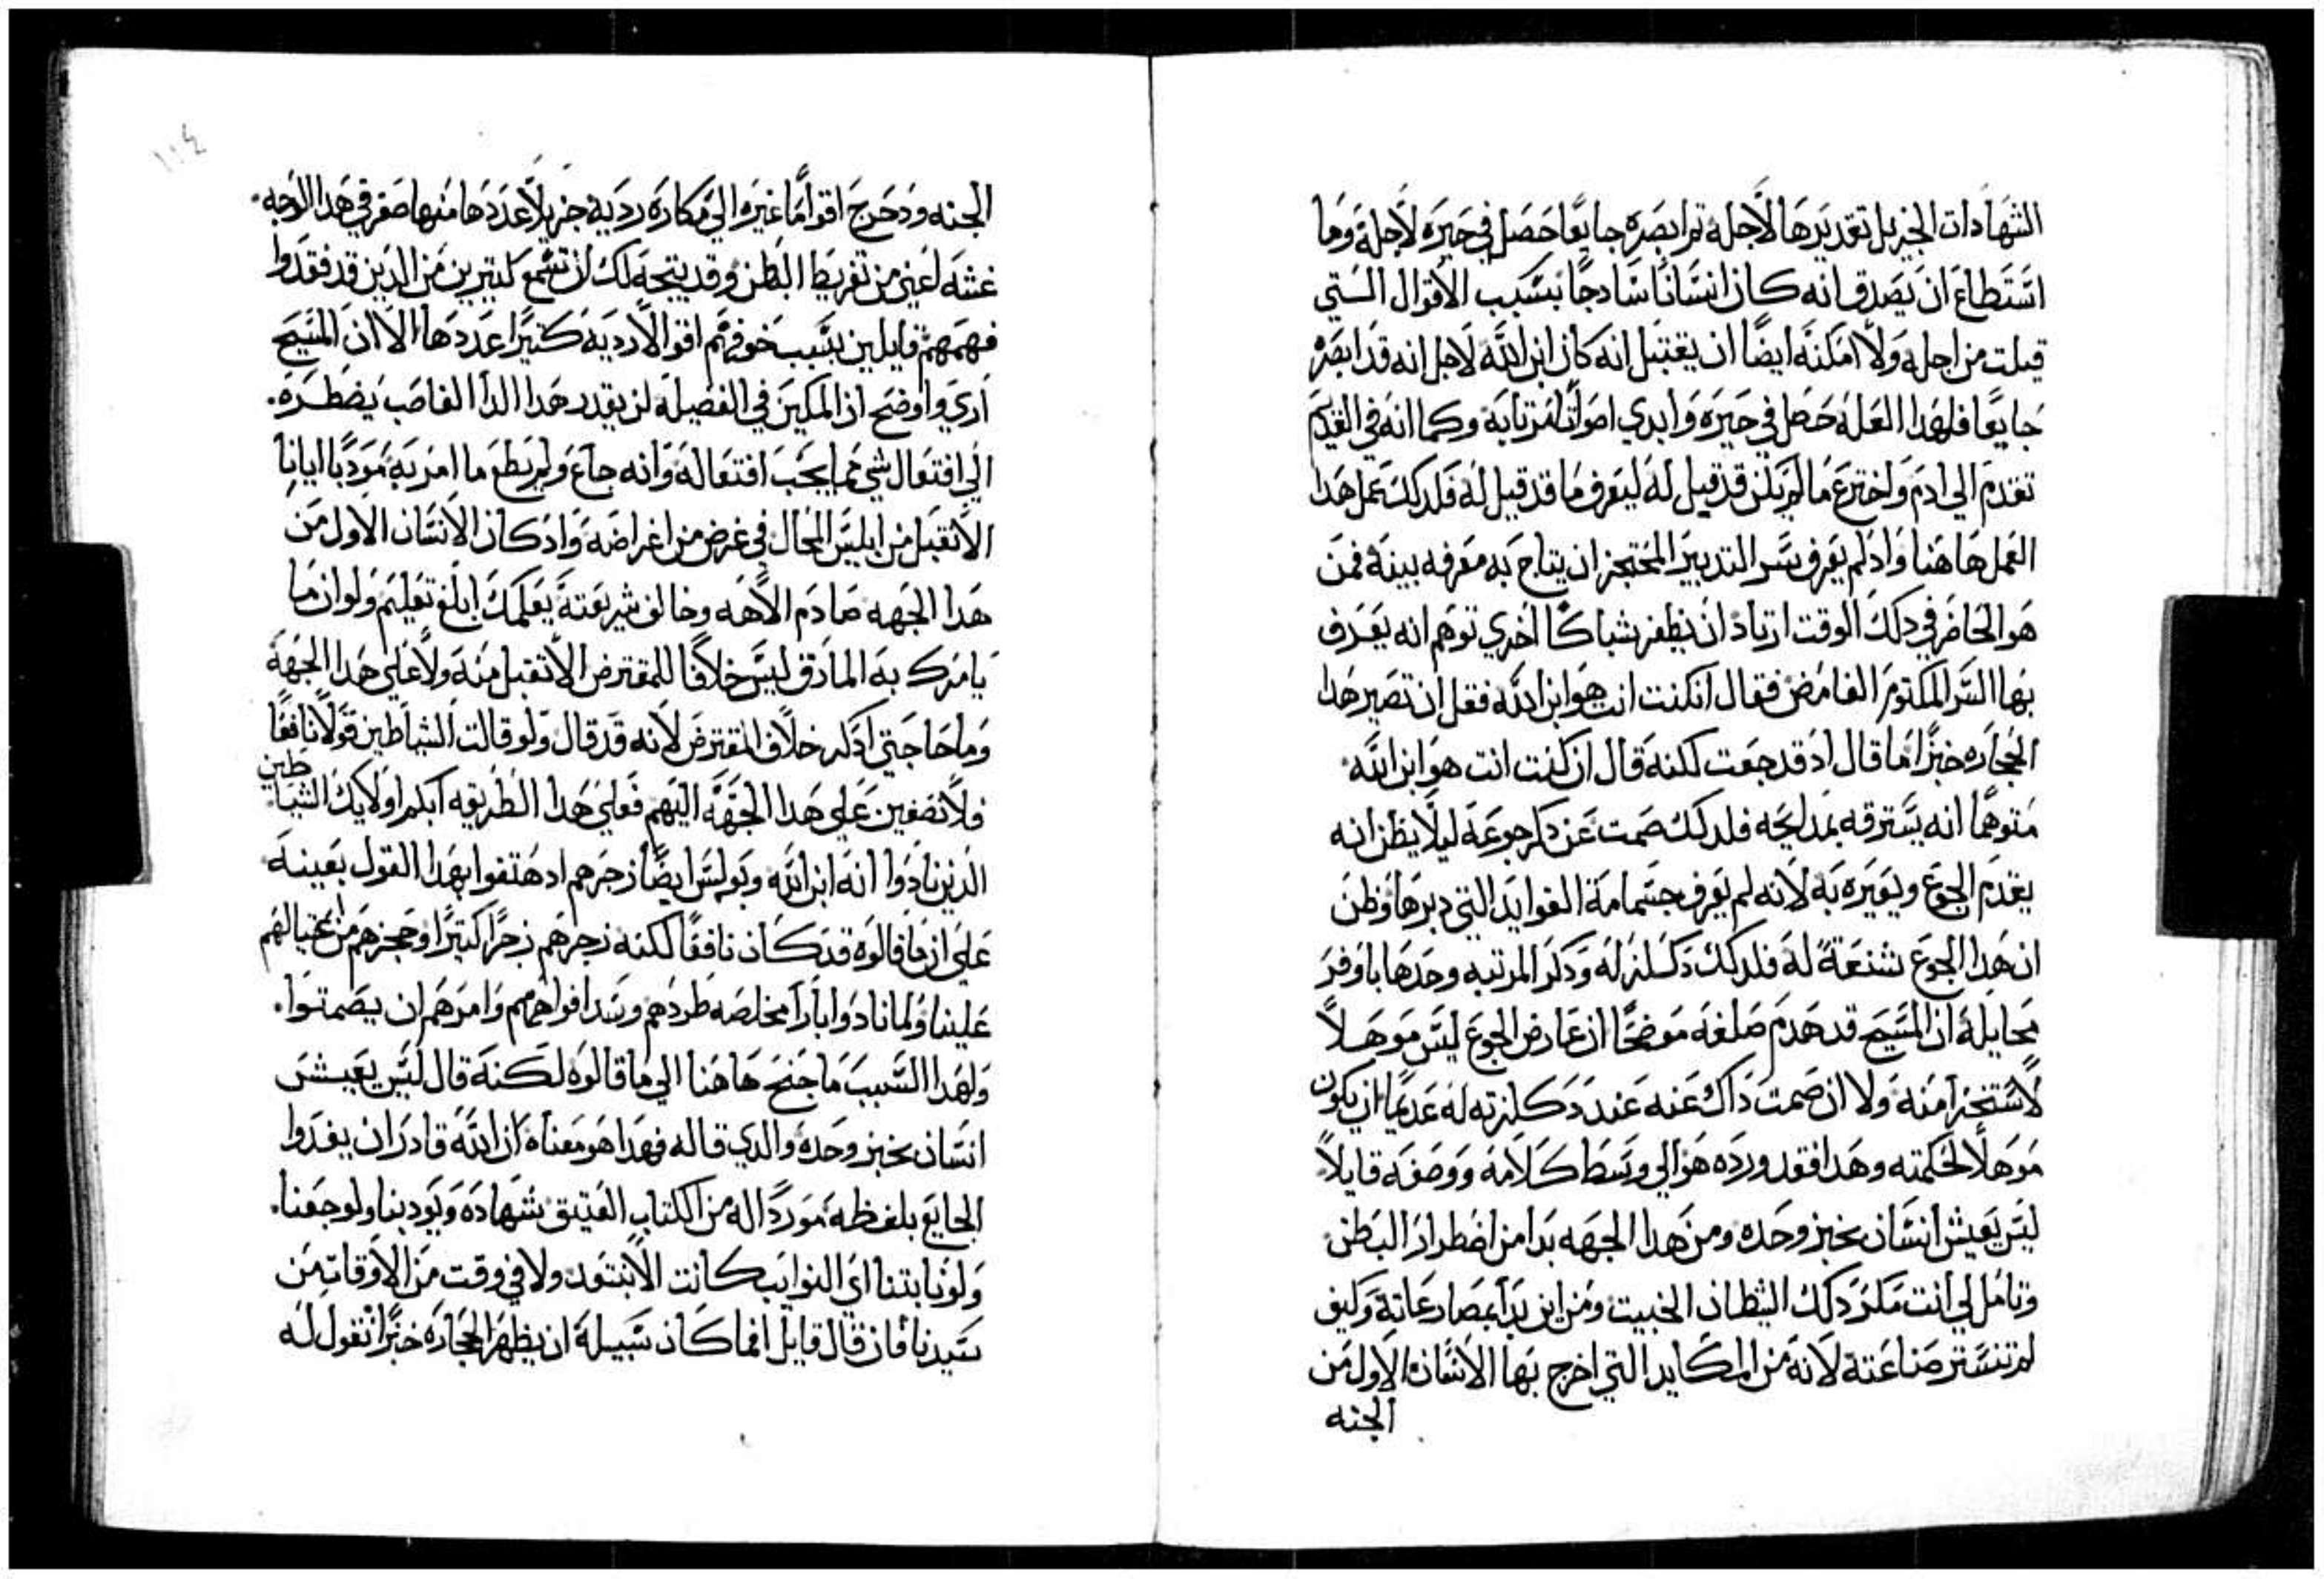 الشهادات الجزيل تقديرها لاجله ثم ابصره جايعًا حصل في حيره لاجله وما
استطاع ان يصدق انه كان انسانًا سادجًا بسبب الاقوال التي
قيلت من اجله ولا امكنه ايضًا ان يقتبل انه كان ابن الله لاجل انه قد ابصره
جايعًا فلهدا العله حصل في حيره وابدي اصواتًا مرتابه وكما انه في القديم
تقدم الي ادم واخترع ما لم يكن قد قيل له ليعرف ما قد قيل له فلدلك عمل هدا
العمل هاهنا واد لم يعرف سر التدبير المحتجز ان يتاح به معرفه بينه فمن
هو الحاضر في دلك الوقت ارتاد ان يظفر بشباكًا اخري توهم انه يعرف
بها السر المكتوم الغامض فقال انكنت انت هو ابن الله فقل ان تصير هدا
الحجاره خبزًا ما قال اد قد جعت لكنه قال ان كنت انت هو ابن الله
متوهمًا انه يسترقه بمدايحه فلدلك صمت عن دكر جوعه ليلا يظن انه
يقدم الجوع ويعيره به لانه لم يعرف جسامة الفوايد التي دبرها وظن
ان هدا الجوع شنعةً له فلدلك دكسلنر له ودكر المرتبه وحدها باوفر
محايله ان المسيح قد هدم صلفه موضحًا ان عارض الجوع ليس موهلاً
لاستخزا منه ولا ان صمت داك عنه عند دكلزته له عديمًا ان يكون
موهلاً لحكمته وهدا فقد ورده هو الي وسط كلامه ووصفه قايلاً
ليس يعيش انسان بخبز وحده ومن هدا الجهه بدا من اضطرار البطن
وتامل لي انت مكر دلك الشطان الخبيت ومن اين بدا بمصارعاته وكيف
لم تنستر صناعته لانه من المكايد التي اخرج بها الانسان الاول من
الجنه
١١٤
الجنه ودحرج اقوامًا غيره الي مكاره رديه جزيلاً عددها منها صغر في هدا الاوجه
غشه اعني من تفريط البطن وقد يتجه لك ان تسمع كتيرين من الدين قد فقدوا
فهمهم قايلين بسبب خوفهم اقوالا رديه كتيرًا عددها الا ان المسيح
اري واوضح ان المكين في الفضيله لن يقدر هدا الدا الغاصب يضطره
الي افتعال شي مما يجب افتعاله وانه جاع ولم يطع ما امر به مودبًا ايانا
الا نقبل من ابليس المحال في غرض من اغراضه واد كان الانسان الاول من
هدا الجهه صادم الاهه وخالف شريعته يعلمك ابلغ تعليم ولو ان ما
يامرك به المادق ليس خلافًا للمفترض الا تقبل منه ولا علي هدا الجهه
وما حاجتي ادكر خلاف المفترض لانه قد قال ولو قالت الشياطين قولاً نافعًا
فلا تصغين علي هدا الجهه اليهم فعلي هدا الطريقه ابكم اولايك الشياطين
الدين نادوا انه ابن الله وبولس ايضًا زجرهم اد هتفوا بهدا القول بعينه
علي ان ما قالوه قد كان نافعًا لكنه زجرهم زجرًا كتيرًا وحجزهم من اغتيالهم
علينا ولما نادوا بارا مخلصه طردهم وسد افواههم وامرهم ان يصمتوا
ولهدا السبب ما جنح هاهنا الي ما قالوه لكنه قال ليس يعيش
انسان بخبز وحده والدي قاله فهدا هو معناه ان الله قادر ان يغدوا
الجايع بلفظه موردًا له من الكتاب العتيق شهاده ويودبنا ولو جعنا
ولو نابتنا اي النوايب كانت الا نبتعد ولا في وقت من الاوقات من
سيدنا فان قال قايل انما كان سبيله ان يظهر الحجاره خبزًا نقول له